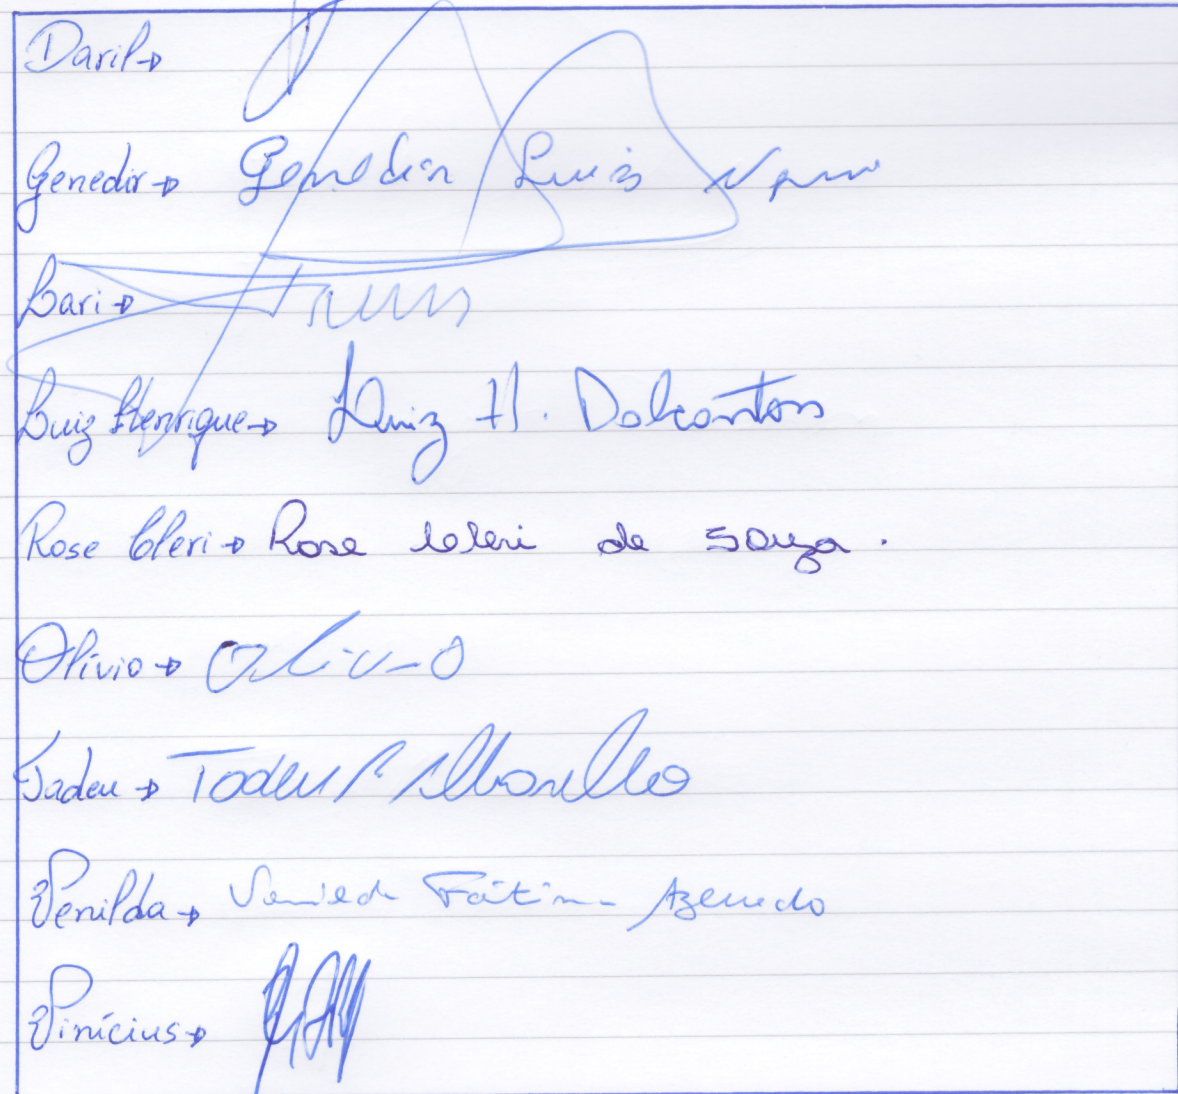 Daril→
Genedir→ Genedir Luiz
Lari→
Luiz Henrique→ Luiz H. Dalcanton
Rose Cleri→ Rose Cleri de Souza.
Olívio→ Olivio
Tadeu→ Tadeu
Venilda→ Fátima Azevedo
Vinícius→